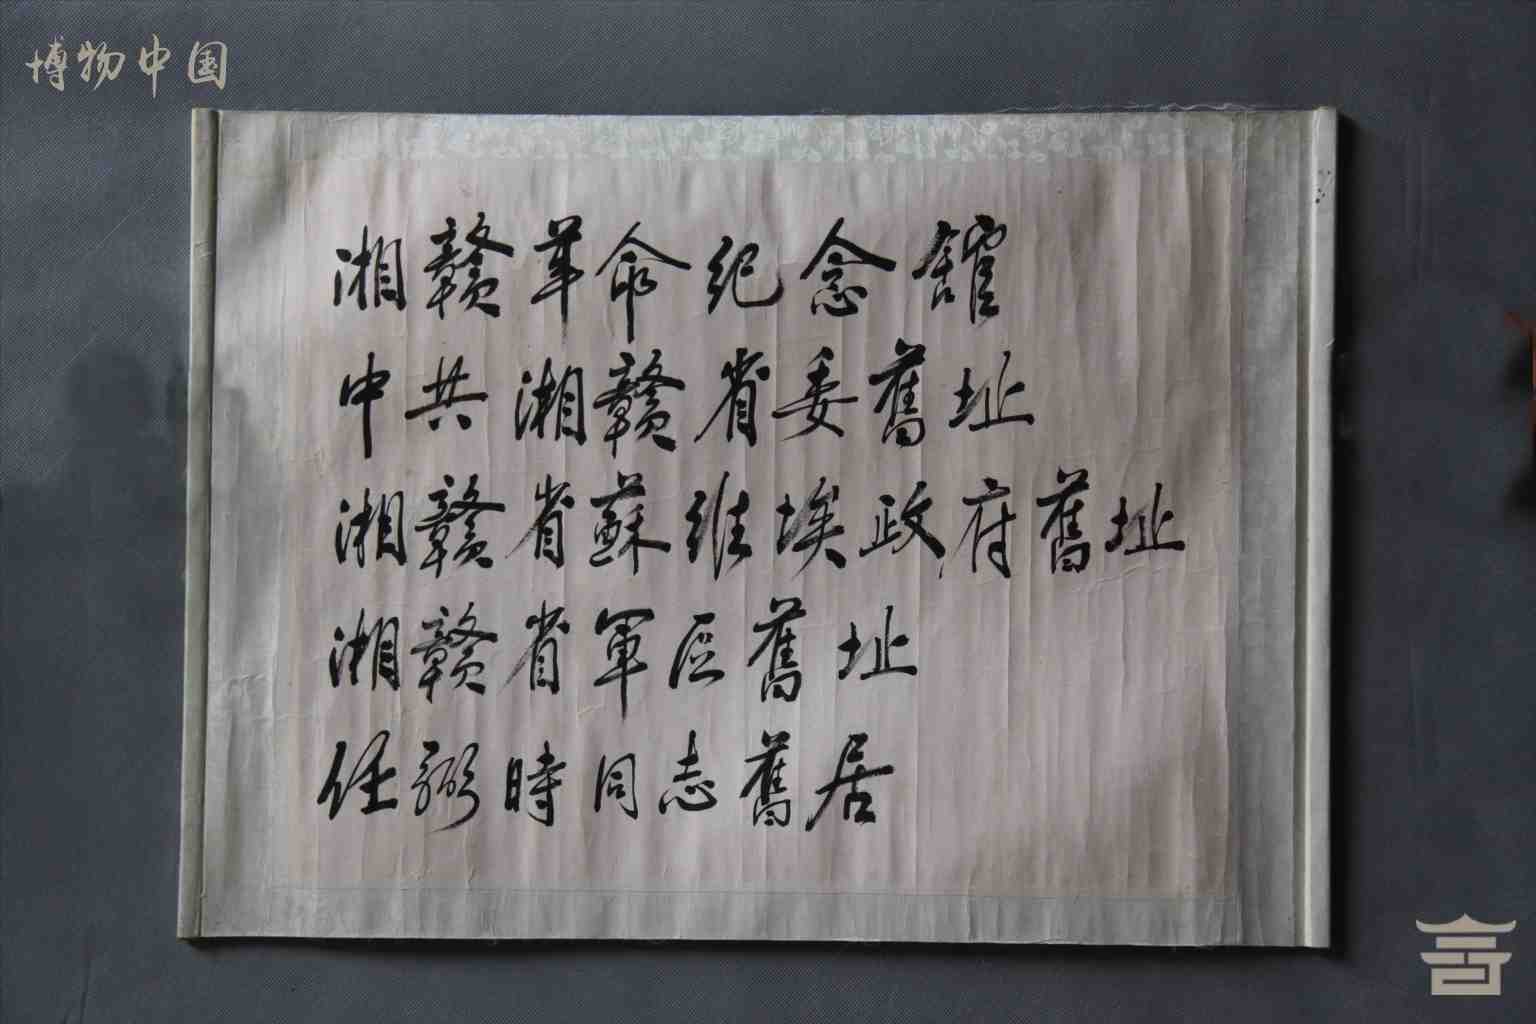 博物中国
湘赣革命纪念舘
中共湘赣省委舊址
湘赣省蘇维埃政府舊址
湘赣省軍区舊址
任弼時同志舊居